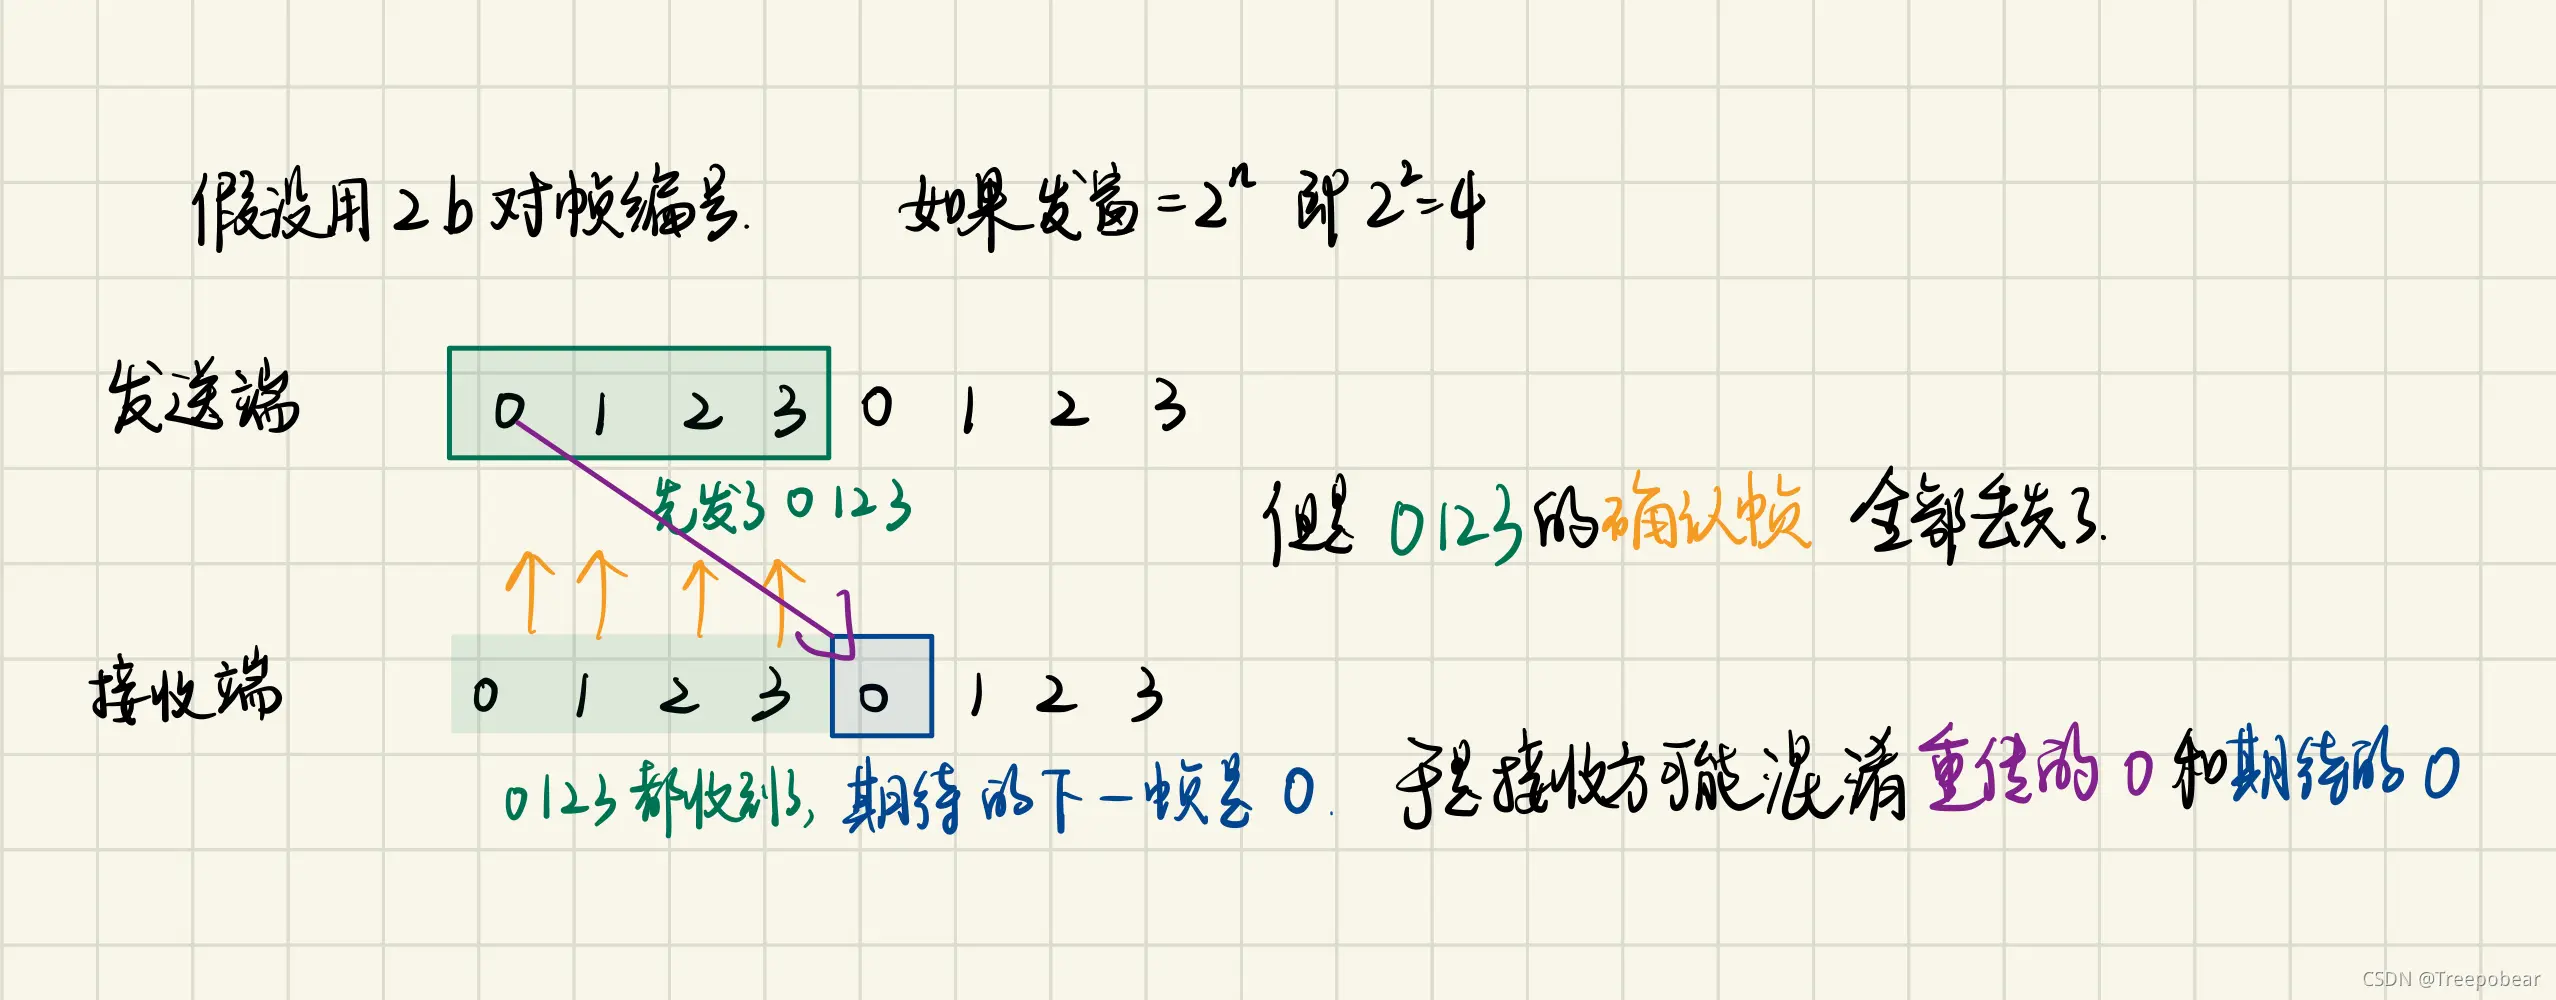 假设用2b对帧编号. 如果发窗=2ⁿ 即2²=4
发送端 0 1 2 3 0 1 2 3
先发了0123
但是 0123的确认帧 全部丢失了.
接收端 0 1 2 3 0 1 2 3
0123都收到了, 期待的下一帧是0.
于是接收方可能混淆重传的0和期待的0
CSDN @Treepobear